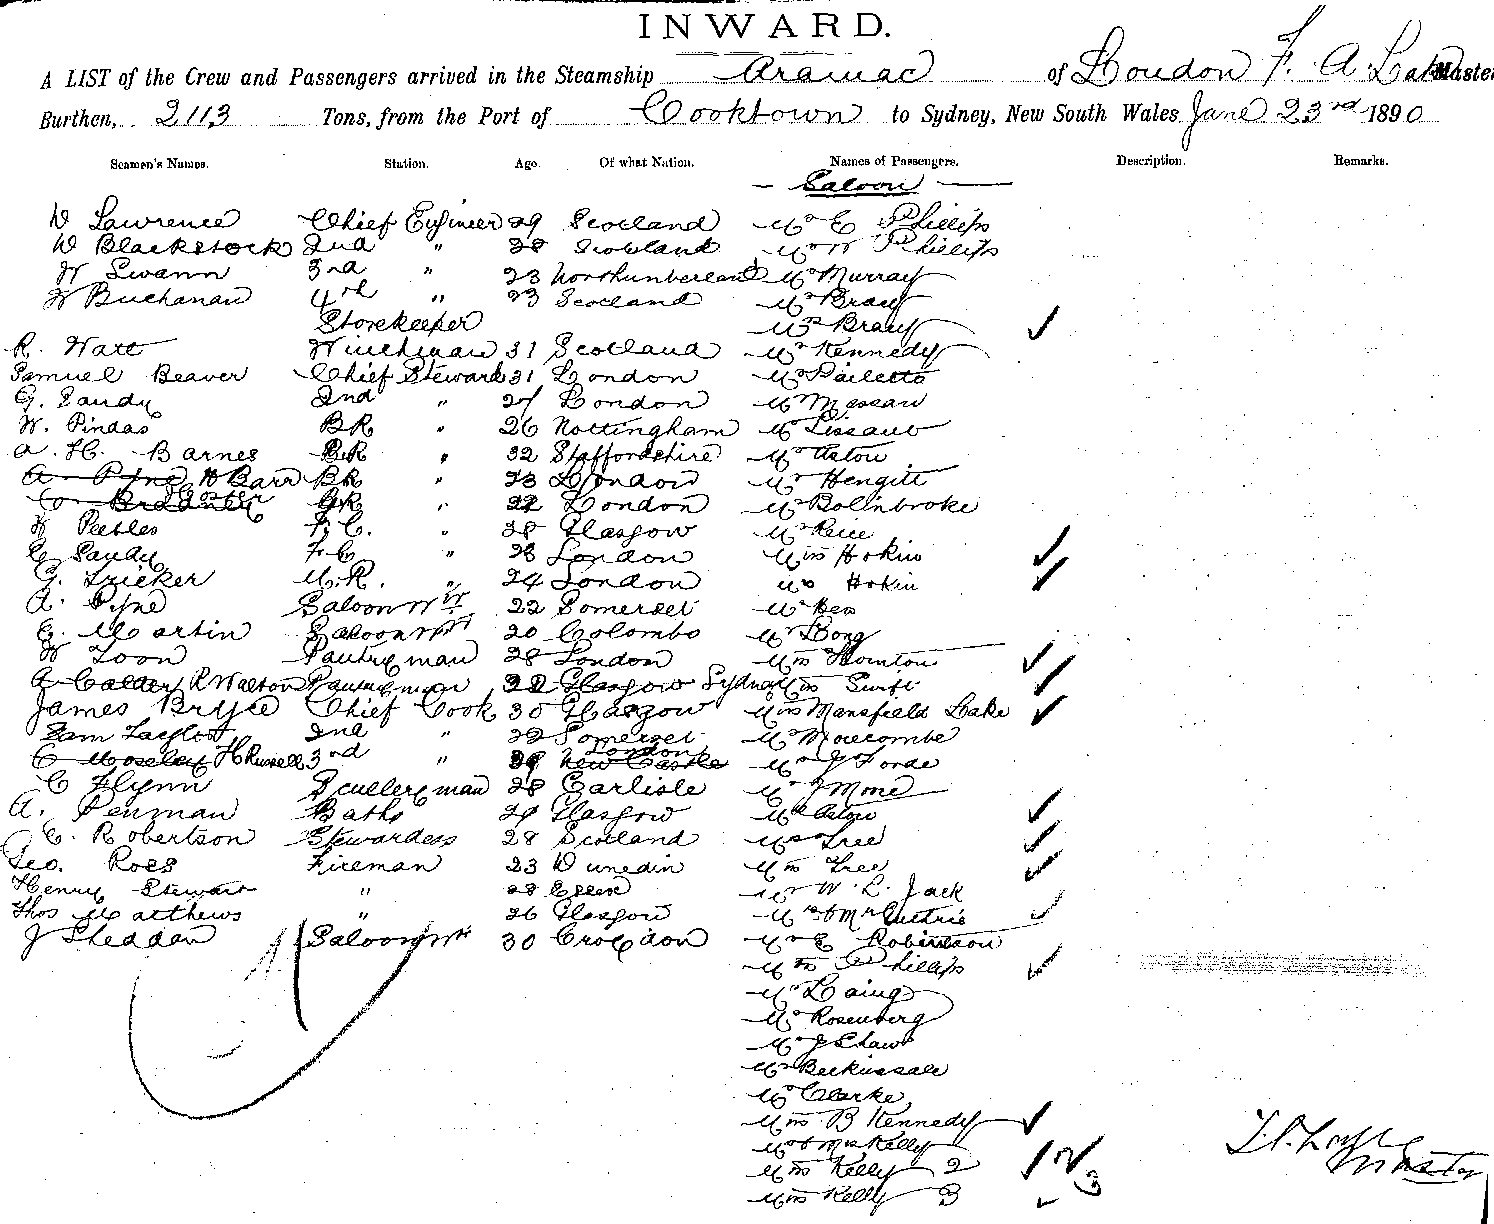 INWARD.
A LIST of the Crew and Passengers arrived in the Steamship Aramac of London F. A. Lake Master
Burthen, 2113 Tons, from the Port of Cooktown to Sydney, New South Wales Jane 23rd 1890
Seamen's Names. Station. Age. Of what Nation. Names of Passengers. Description. Remarks.
Saloon
W Lawrence Chief Engineer 29 Scotland Mr E Phillips
W Blackstock 2nd " 28 Scotland Mr W Phillips
W Swann 3rd " 23 Northumberland Mr Murray
W Buchanan 4th " 23 Scotland Mr Bray
Storekeeper Mrs Bray
R. Watt Winchman 31 Scotland Mr Kennedy
Samuel Beaver Chief Steward 31 London Mr
G. Sandy 2nd " 27 London Mr
W. Pindar BR " 26 Nottingham Mr
A. H. Barnes BR " 32 Staffordshire Mr Aston
A. Pyne H Barr BR " 23 London Mr
BR " 22 London Mr Bolinbroke
W Peebles F. C. " 28 Glasgow Mr
C Sandy F. C. " 23 London Mrs Hokin
G. Tricker M. R. " 24 London Mr Hokin
A. Pyne Saloon Wtr 22 Somerset Mr
G. Martin Saloon Wtr 20 Colombo Mr Long
W Toon Pantryman 28 London Mrs Thornton
A Calder R Walton Pantryman 22 Glasgow Sydney Miss Swift
James Bryce Chief Cook 30 Glasgow Mrs Mansfield Lake
Sam Taylor 2nd " 22 Somerset Mr
C Moseley H Russell 3rd " London New Castle Mr J Forde
C Flynn Sculleryman 28 Carlisle Mr
A. Penman Baths 29 Glasgow Mrs Aston
C. Robertson Stewardess 28 Scotland Mrs Tree
Geo. Ross Fireman 23 Dunedin Miss Tree
Henry Stewart " 28 Essex Mr W. L. Jack
Thos Matthews " 26 Glasgow Mr & Mrs Guthrie
J Sheddan Saloon Wtr 30 Croydon Mr E Robertson
Mrs Phillips
Mr Laing
Mr Rosenberg
Mr J Shaw
Mr Beckinsale
Mr Clarke
Mrs B Kennedy
Mr & Mrs Kelly
Miss Kelly 2
Miss Kelly 3
Master